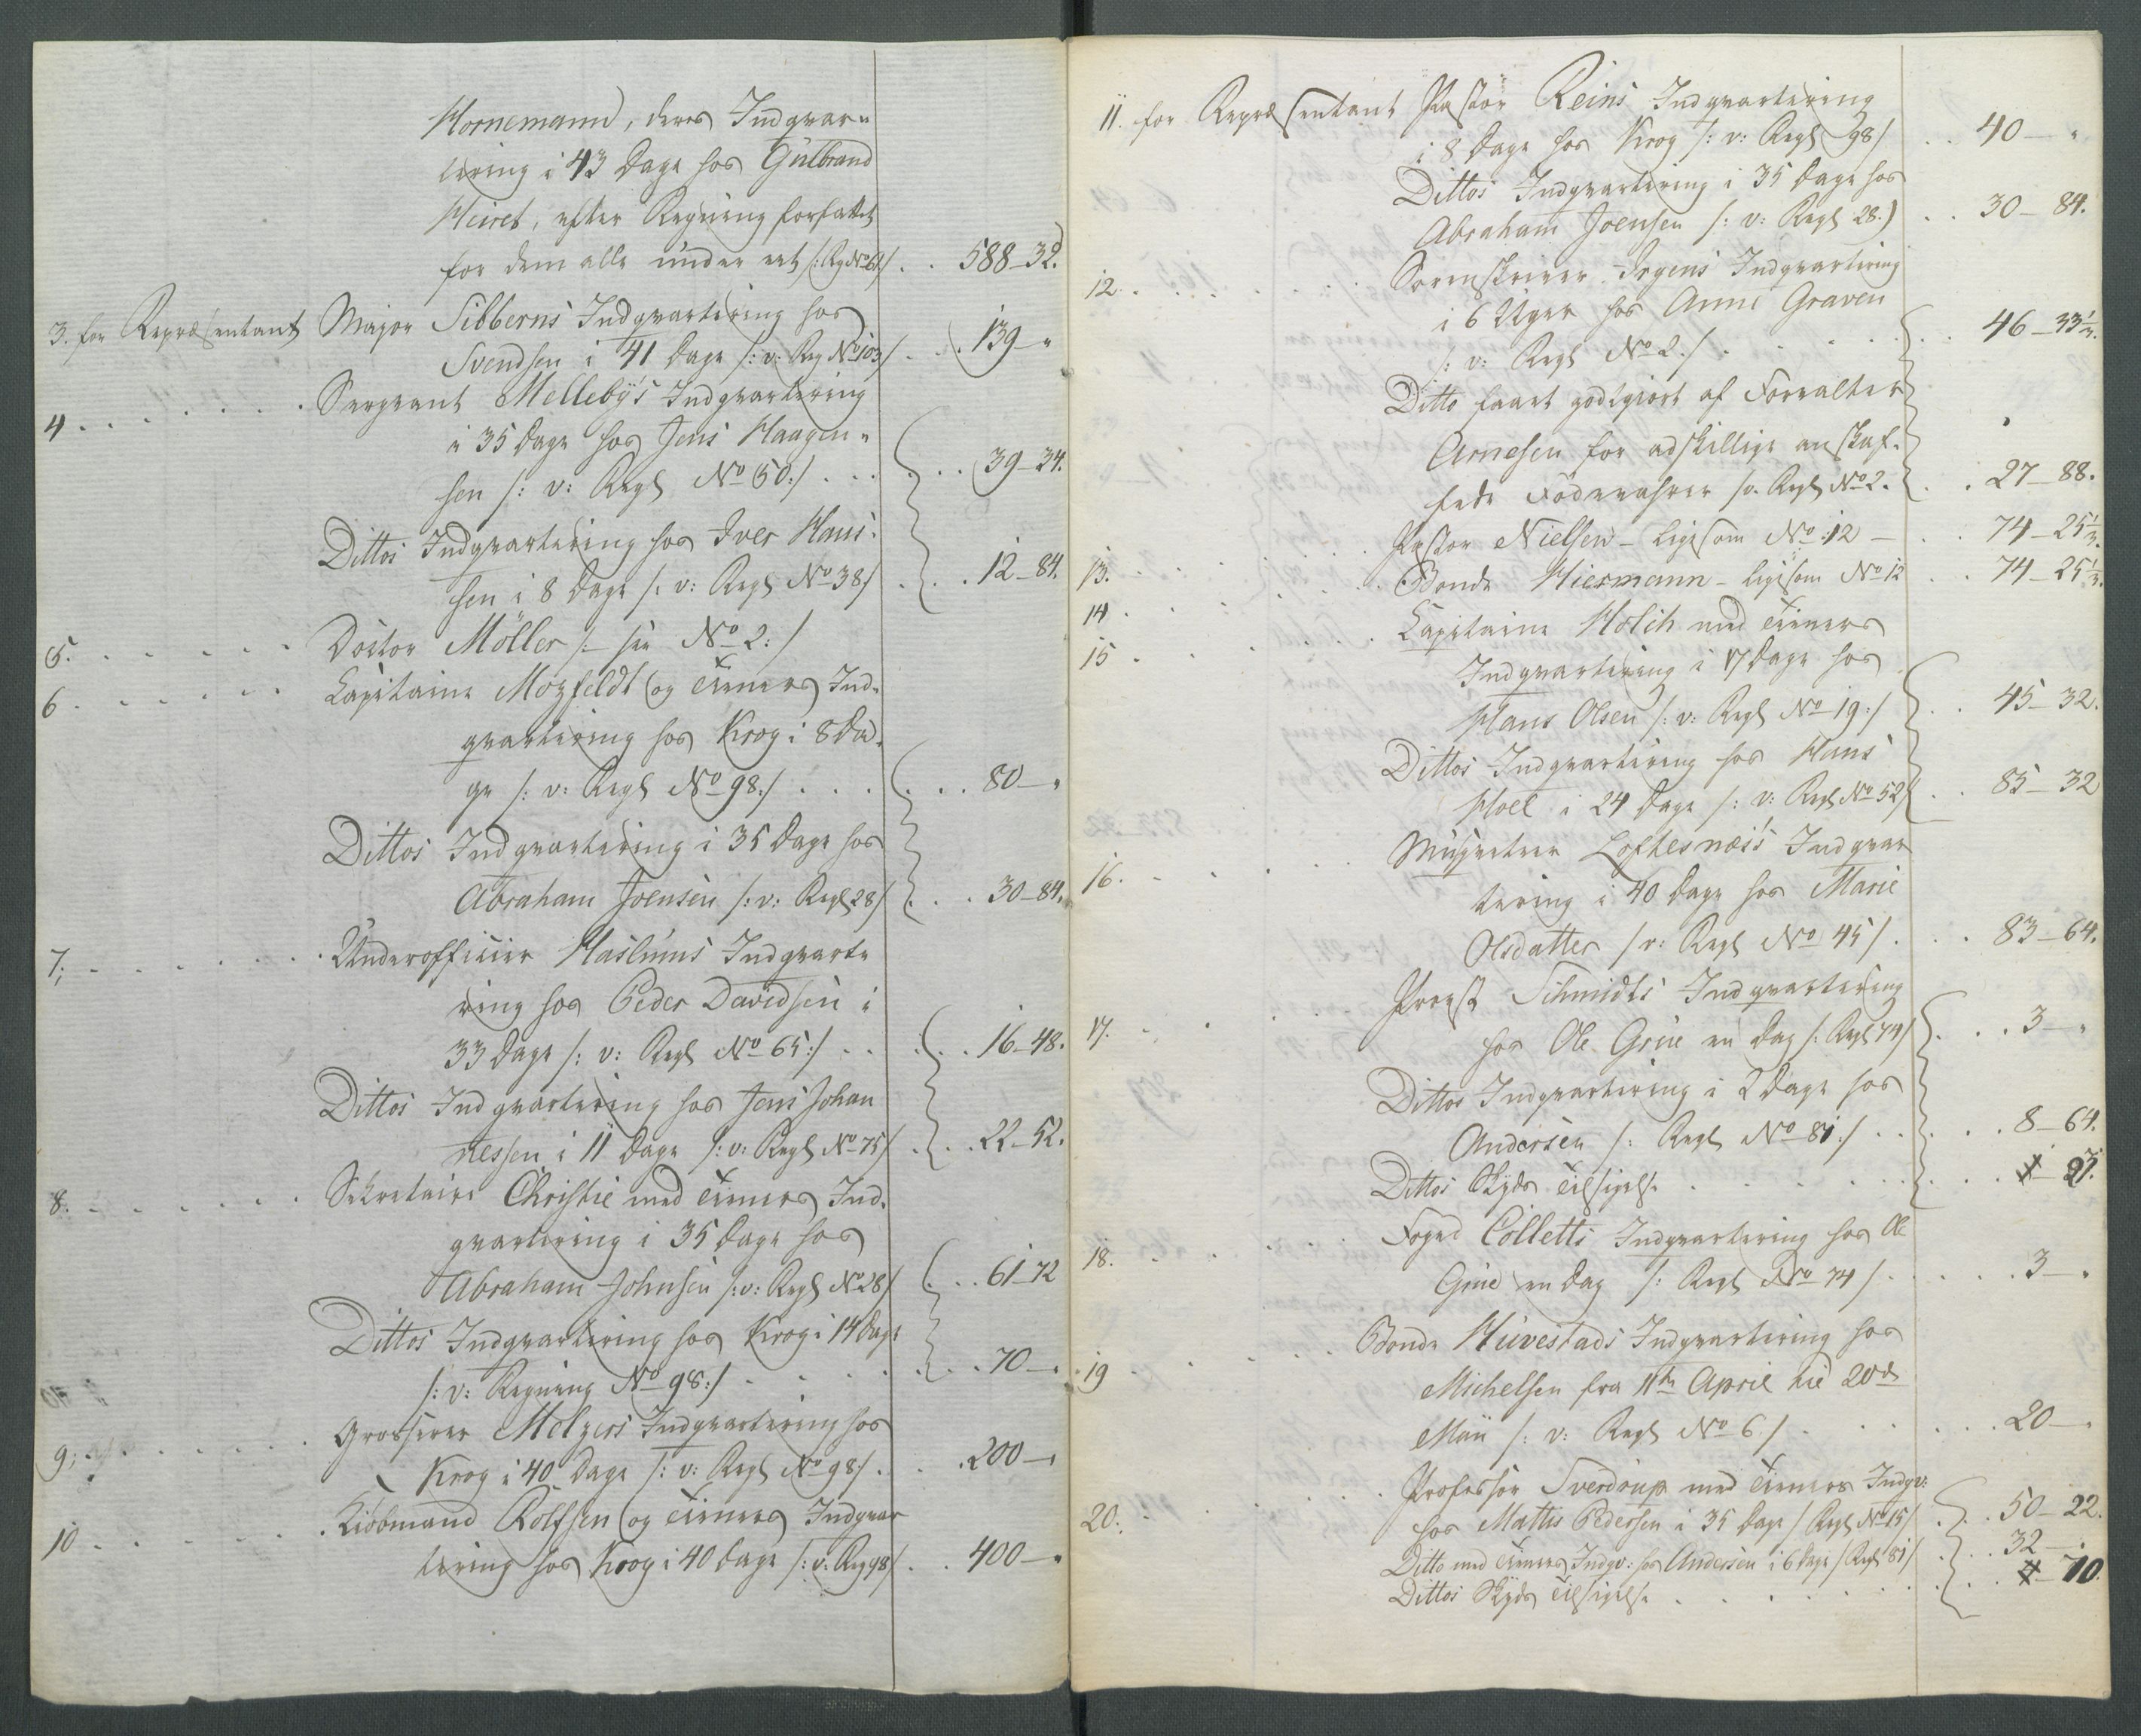 Hornemann, deres Indqvar-
tering i 43 Dage hos Gulbrand
Meiret, efter Regning forfattet
for dem alle under eet /: Rg No 61/ . . 588 _ 32.
3. for Repræsentant Major Sibberns Indqvartering hos
Svendsen i 41 Dage /: v: Reg No 103/ . . . 139 _ "
4 . . . . . . . Sergeant Mellebÿ's Indqvartering
i 35 Dage hos Jens Haagen-
sen /: v: Regs No 50 :/ . . . . . 39 _ 34.
Dittos Indqvartering hos Iver Hans-
sen i 8 Dage /: v: Regs No 38/ . . . 12 _ 84.
5. . . . . . . Doctor Möller /: see No 2 : /
6 . . . . . . Capitaine Mozfeldt og Tieners Ind-
qvartering hos Krog i 8 Da-
ge /: v: Regs No 98 :/ . . . . . . 80 _ "
Dittos Indqvartering i 35 Dage hos
Abraham Joensen /: v: Regs 28/ . . . 30 _ 84.
7; . . . . . . . Underofficier Haslums Indqvarte
ring hos Peder Davidsen i
33 Dage /: v: Regs No 65 :/ . . . . . 16 _ 48.
Dittos Indqvartering hos Jens Johan
nessen i 11 Dage /: v: Regs No 75/ . . . 22 _ 52.
8. . . . . . . Sekretaire Christie med Tieners Ind-
qvartering i 35 Dage hos
Abraham Johnsen /: v: Regs No 28/ . . . 61 _ 72
Dittos Indqvartering hos Krog i 14 Dage
/: v: Regning No 98 :/ . . . . . . 70 _ "
9; . . . . . . . Grosserer Meltzers Indqvartering hos
Krog i 40 Dage /: v: Regs No 98/ . . . 200 _ "
10 . . . . . . Kiöbmand Rolfsen og Tieners Indqvar
tering hos Krog i 40 Dage /: v: Reg 98/ . . 400 _ "
11. for Repræsentant Pastor Reins Indqvartering
i 8 Dage hos Krog /: v: Regs 98/ . . 40 _ "
Dittos Indqvartering i 35 Dage hos
Abraham Joensen /: v: Regs 28.) . . 30 _ 84.
12 . . . . . . . Sorenskriver Irgens Indqvartering
i 6 Uger hos Anne Graven
/: v: Regs No 2./ . . . . . . 46 _ 33 1/2.
Ditto faaet godtgiort af Forvalter
Arnesen for adskillige anskaf-
fede Födevahrer /v. Regs No 2. . . 27 _ 88.
13. . . . . . . Pastor Nielsen _ ligesom No 12 _ . . 74 _ 25 1/2.
14 . . . . . . . Bonde Hiermann _ ligesom No 12 . . 74 _ 25 1/2.
15 . . . . . . Capitaine Holck med Tieners
Indqvartering i 17 Dage hos
Hans Olsen /: v: Regs No 19 :/ . . 45 _ 32.
Dittos Indqvartering hos Hans
Hoel i 24 Dage /: v: Regs No 52/ . . 85 _ 32
16. . . . . . Musqueteer Loftesnæs's Indqvar
tering i 40 Dage hos Marie
Olsdatter /v: Regs No 45/ . . . 83 _ 64.
17. . . . . . Provst Schmidts Indqvartering
hos Ole Grüe en Dag /: Regs 74/ . . . 3 _ "
Dittos Indqvartering i 2 Dage hos
Andersen /: Regs No 81./ . . . . . 8 _ 64.
Dittos Skyds Tilsigelse . . . . . . . 27.
18. . . . . . . Foged Colletts Indqvartering hos Ole
Grüe en Dag /: Regs No 74/ . . . . . 3 _ "
19 . . . . . . Bonde Huvestads Indqvartering hos
Michelsen fra 11te April til 20de
Maii /: v: Regs No 6./ . . . . . 20 _ "
20. . . . . . . Professor Sverdrup med Tieners Indqv:
hos Mattis Pedersen i 35 Dage / Regs No 15/ . . . 50 _ 22.
Ditto med Tieners Indqv: hos Andersen i 6 Dage /Regs 81/ . . . 32 _ "
Dittos Skyds Tilsigelse . . . . . . 70